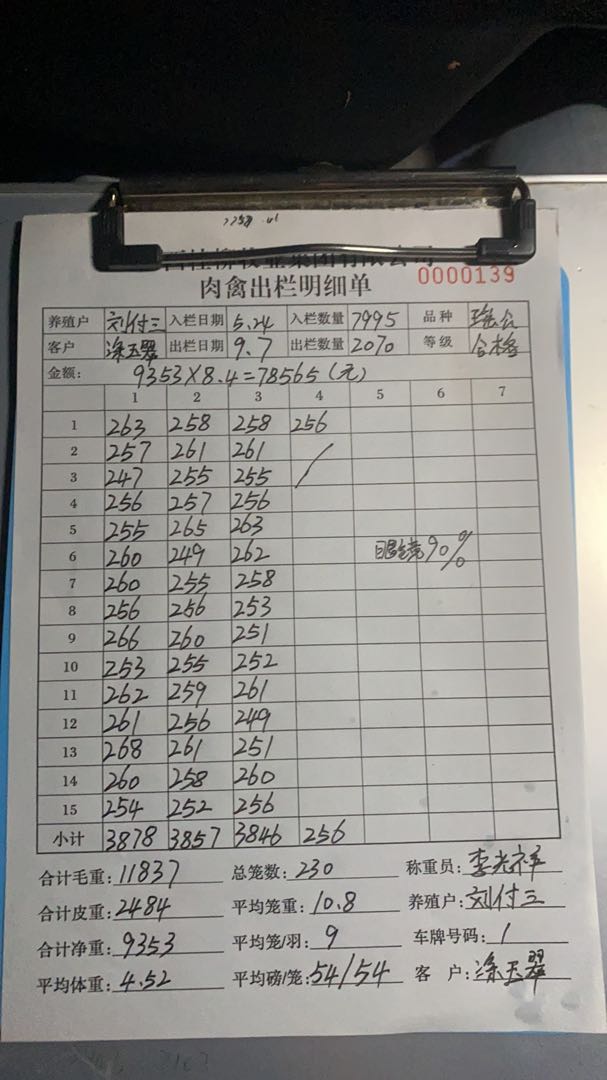 牧业集团有限公司
肉禽出栏明细单
0000139
养殖户 刘付三 入栏日期 5.24 入栏数量 7995 品种
客户 涂玉翠 出栏日期 9.7 出栏数量 2070 等级 合格
金额: 9353×8.4=78565(元)
1 2 3 4 5 6 7
1 263 258 258 256
2 257 261 261
3 247 255 255
4 256 257 256
5 255 265 263
6 260 249 262 眼镜90%
7 260 255 258
8 256 256 253
9 266 260 251
10 253 255 252
11 262 259 261
12 261 256 249
13 268 261 251
14 260 258 260
15 254 252 256
小计 3878 3857 3846 256
合计毛重: 11837 总笼数: 230 称重员: 李光祥
合计皮重: 2484 平均笼重: 10.8 养殖户: 刘付三
合计净重: 9353 平均笼/羽: 9 车牌号码: 1
平均体重: 4.52 平均磅/笼: 54/54 客 户: 涂玉翠